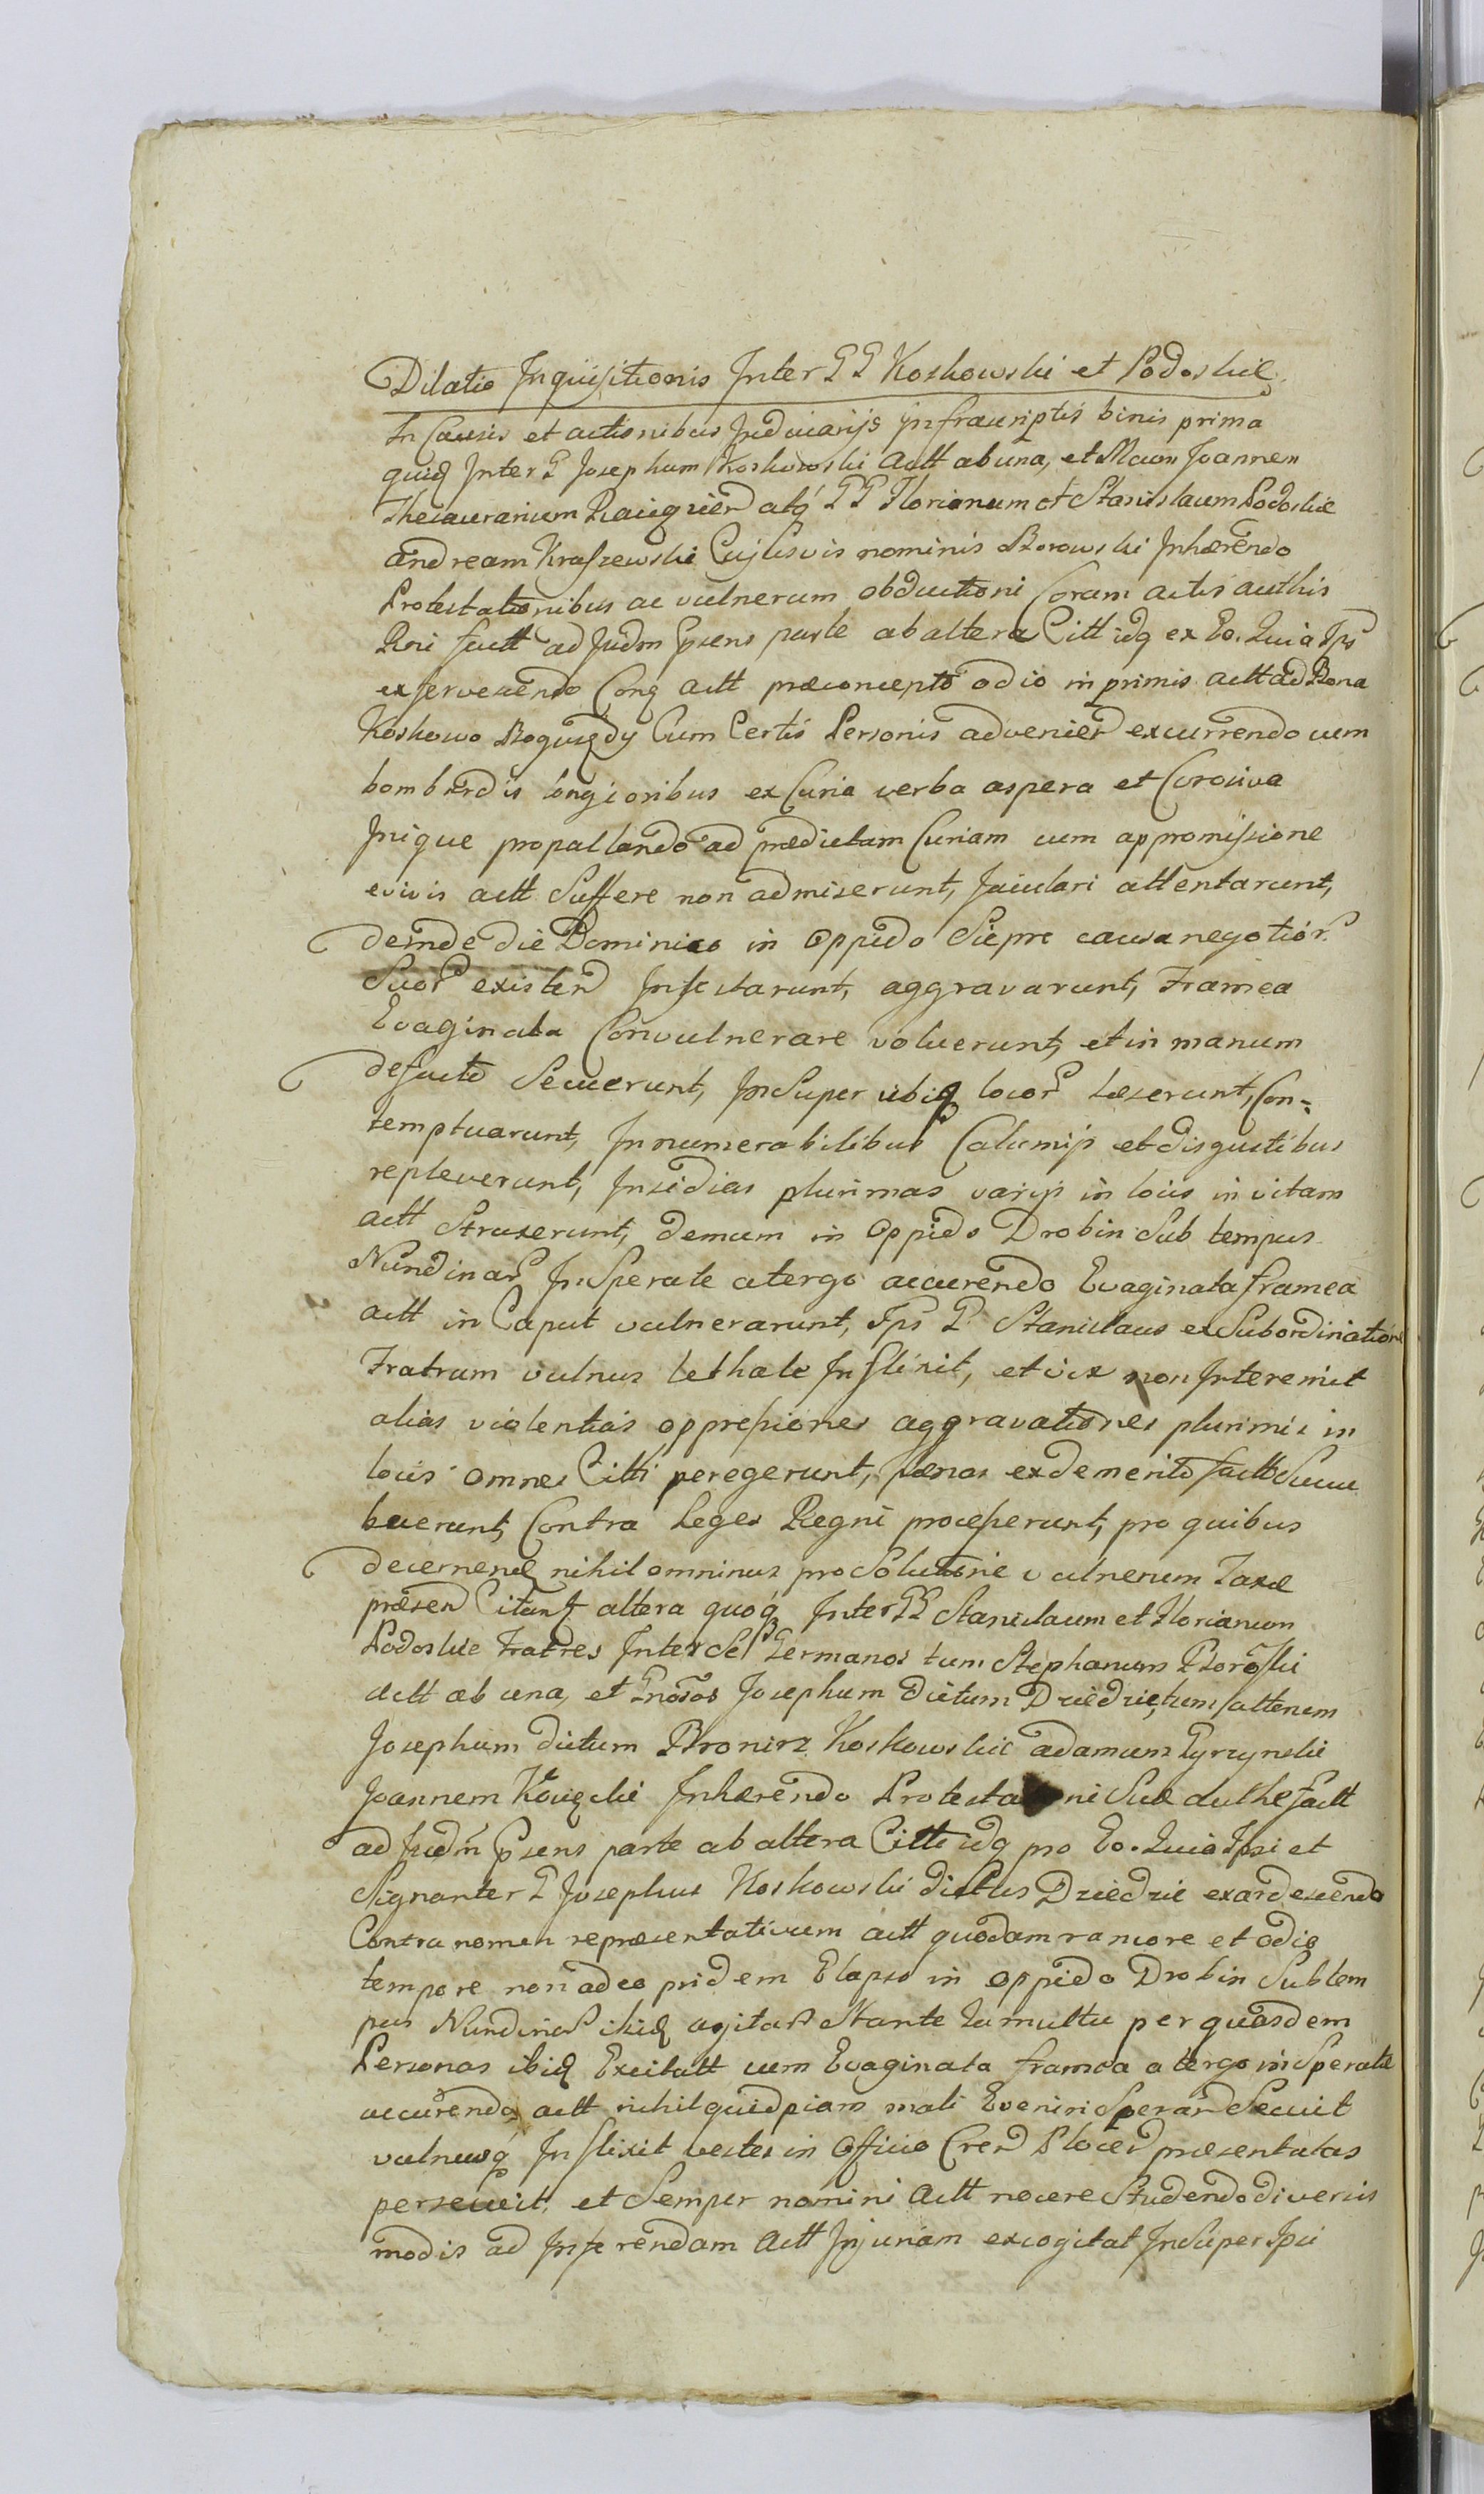 Dilatio Inquisitionis Inter GG Koskowski et Podoskie
In Causis et actionibus Judiciarijs Infrascriptis binis prima
quidq Inter G Josephum Koskowski Actt ab una, et Mcum Joannem
Thesaurarium Raciąznen atq GG Florianum et Stanislaum Podoskie
Andream Kraszewski Cujusvis nominis Borowski Inhærendo
Protestationibus ac vulnerum obductioni Coram actis authis
Rni factt ad Judm Ppsens parte ab altera Citt idq ex Eo. Quia Ips
exfervescendo Conq actt præconcepto odio inprimis actt ad Bona
Koskowo Bogusządy Cum Certis Personis advenien excurrendo cum
bombardis longioribus ex Curia verba aspera et Corosiva
Inique propallando ad prædictam Curiam cum appromissione
evivis actt Suffere non admiserunt, Jaiculari attentarunt,
deinde die Dominico in Oppido Sierpc causa negotior
Suor existen Infestarunt, aggravarunt, Framea
Evaginata Convulnerare voluerunt, et in manum
defacto Secuerunt, Insuper ubiq locor Læserunt, Con-
temptuarunt, Innumerabilibus Calumijs et disgustibus
repleverunt, Insidias plurimas varijs in locis in vitam
actt Struxerunt, demum in Oppido Drobin Sub tempus
Nundinar Insperate atergo accurendo Evaginata framea
actt in Caput vulnerarunt, Ips G Stanislaus ex Subordinatione
Fratrum vulnus lethale Inflixit, et vix non Interemit
alias violentias oppressiones aggravationes plurimis in
locis omnes Citti peregerunt, pænas ex demerito facto Succu
buerunt, Contra Leges Regni processerunt, pro quibus
decernend nihilominus pro Solutione vulnerum Taxæ
præsen Citantq altera quoq Inter GG Stanislaum et Florianum
Podoskie Fratres Inter Se Germanos tum Stephanum Borowski
Actt ab una, et Gnosos Josephum dictum Dziedzic, tum alterum
Josephum dictum Bronisz Koskowskie Adamum Gyrzynski
Joannem Inhærendo Protestationi Suæ authe factt
ad Judm Ppsens parte ab altera Citti idq pro Eo. Quia Ipsi et
Signanter G Josephus Koskowski dictus Dziedzic exardescendo
Contra nomen repræsentativum actt quodam rancore et odio
tempore non adeo pridem Elapso in Oppido Drobin Sub tem
pus Nundinar ibidq agitar Stante Tumultu per quasdem
Personas ibiq Excitatt cum Evaginata framea a tergo insperate
accurendo, actt nihil quidpiam mali Eveniri Speran Secuit
vulnusq Inflixit vestes in Officio Cren Plocen præsentatas
persecuit, et Semper nomini Actt nocere Studendo diversis
modis ad Inferendam Actt Injuriam excogitat Insuper Ipsi